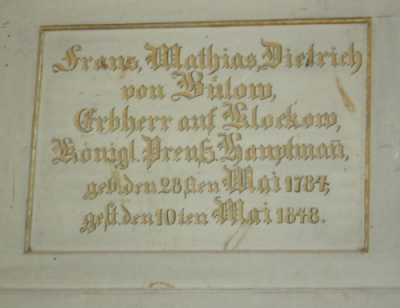 Franz, Mathias, Dietrich
von Bülow,
Erbherr auf Klockow,
Königl. Preuß. Hauptmañ,
geb. den 28sten Mai 1784;
gest. den 10ten Mai 1848.